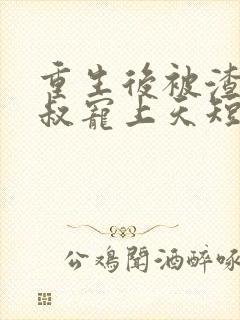 重生後被渣
叔寵上天短
公鸡聞酒醉啄